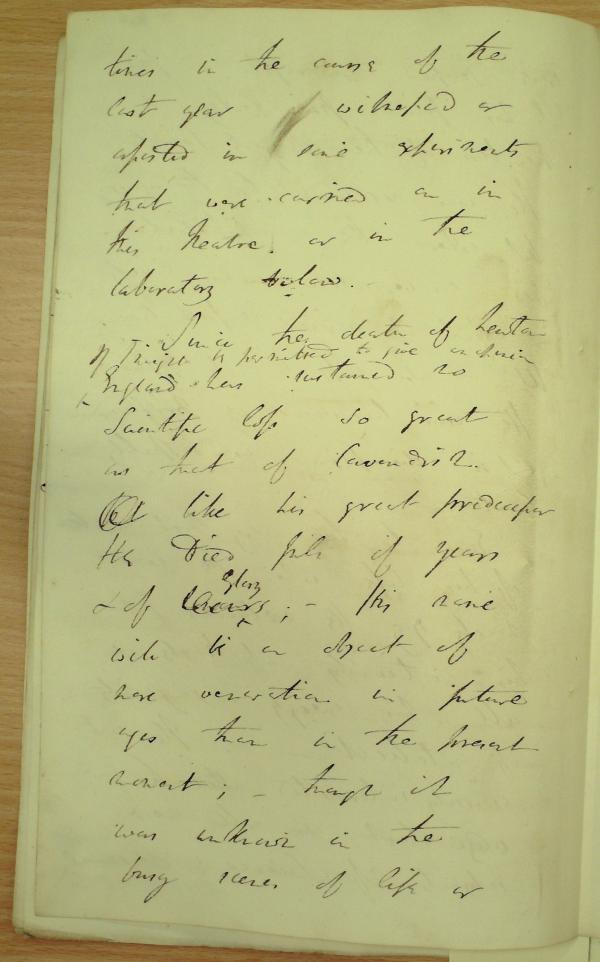 times in the course of the
last year witnessed or
assisted in some experiments
that were carried on in
this theatre. or in the
laboratory below.
Since the death of Newton
If I may be permitted to give an opinion
England has sustained no
Scientific loss so great
as that of Cavendish.
like his great predecessor
He Died full of years
& of glory ; - His name
will be an object of
more veneration in future
ages than in the present
moment ; - though it
was unknown in the
busy scenes of life or